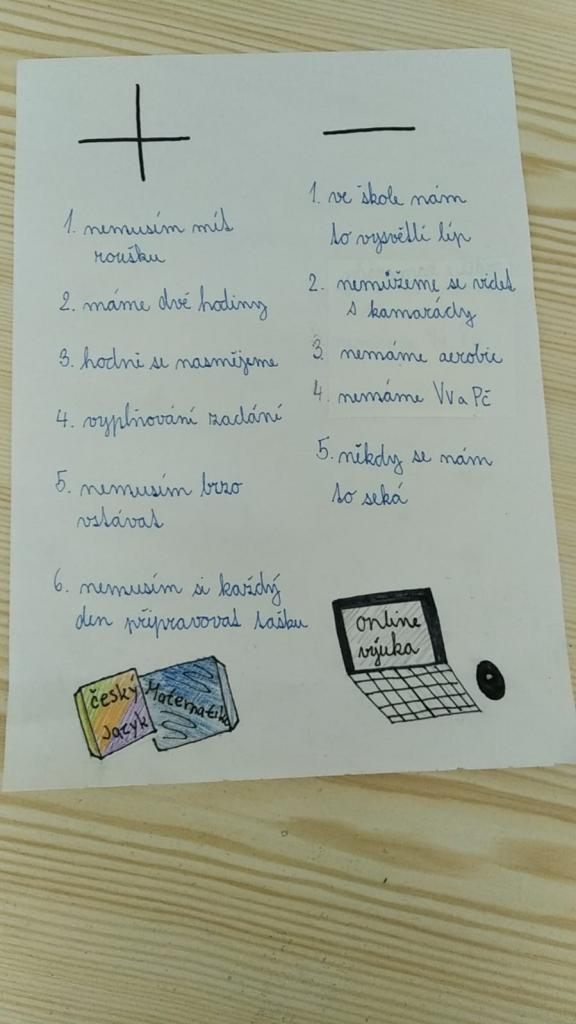 +
1. nemusím mít
roušku
2. máme dvě hodiny
3. hodně se nasmějeme
4. vyplňování zadání
5. nemusím brzo
vstávat
6. nemusím si každý
den připravovat tašku
český
Jazyk
Matematika
—
1. ve škole nám
to vysvětlí líp
2. nemůžeme se vidět
s kamarády
3. nemáme aerobic
4. nemáme Vv a Pč
5. někdy se nám
to seká
online
výuka